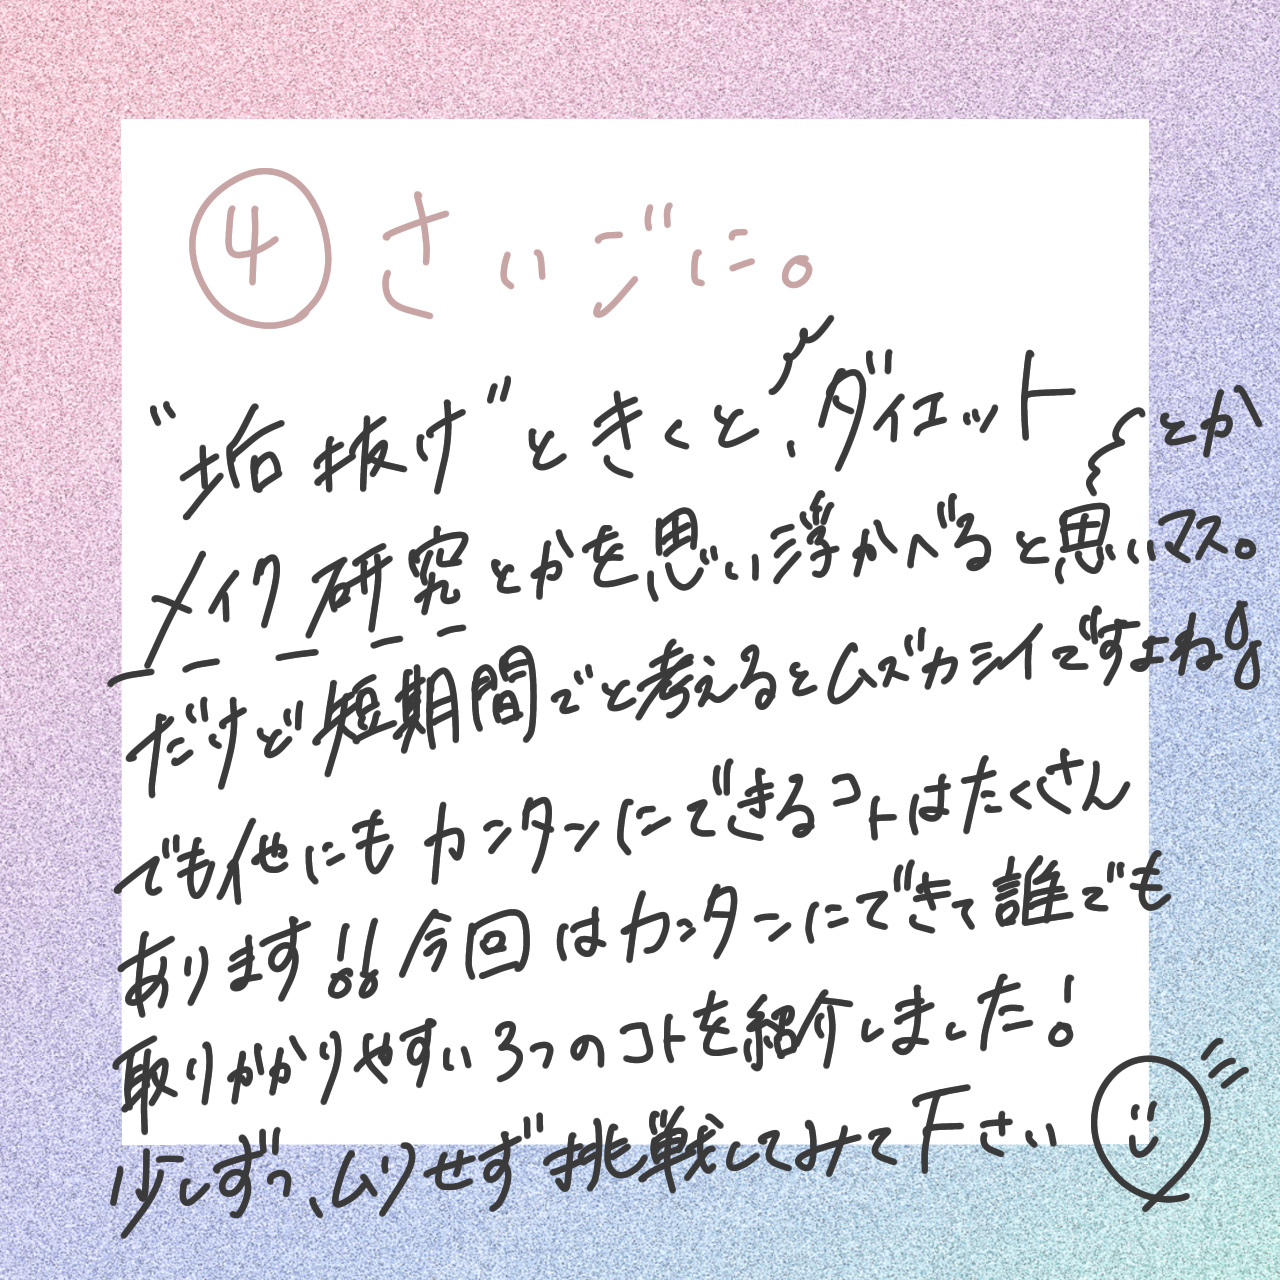 ④さいごに。
"垢抜け"ときくと、ダイエットとか
メイク研究とかを思い浮かべると思いマス。
だけど短期間でと考えるとムズカシイですよね
でも他にもカンタンにできるコトはたくさん
あります!! 今回はカンタンにできて誰でも
取りかかりやすい3つのコトを紹介しました!
少しずつ、ムリせず挑戦してみて下さい